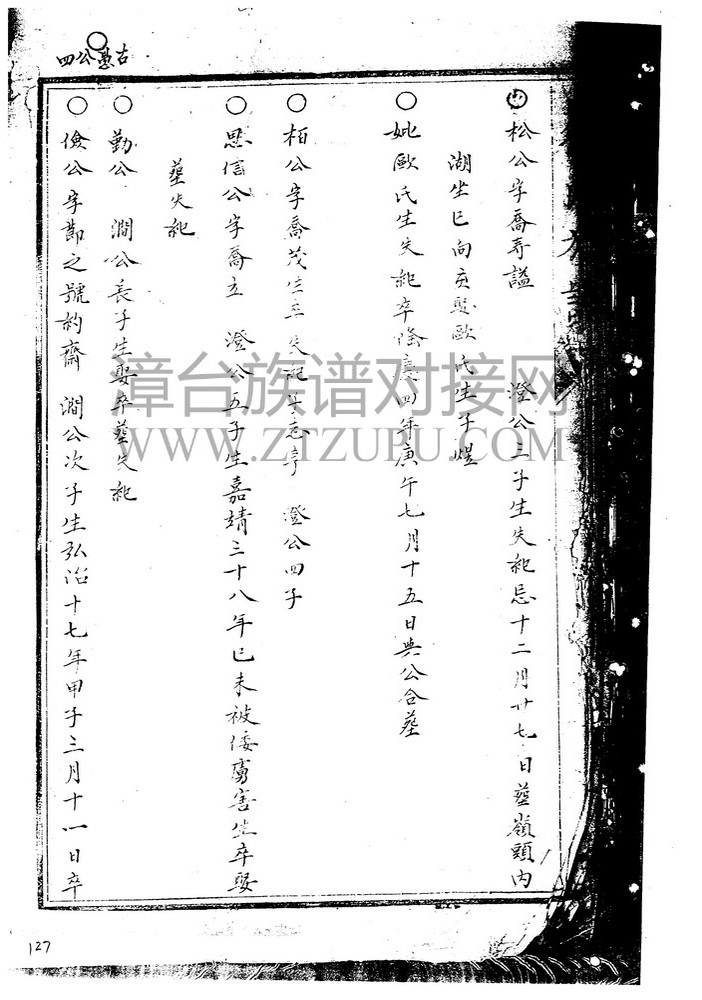 古愚公四
松公字喬壽謚 澄公三子生失紀忌十二月廿七日塟嶺頭內
湖坐巳向亥娶歐氏生子煜
妣歐氏生失紀卒隆慶四年庚午七月十五日與公合塟
栢公字喬茂生卒失紀子志亨 澄公四子
思信公字喬立 澄公五子生嘉靖三十八年已未被倭虜害生卒娶
塟失紀
勤公 澗公長子生娶卒塟失紀
儉公字節之號約齋 澗公次子生弘治十七年甲子三月十一日卒
漳台族谱对接网
WWW.ZTZUPU.COM
127